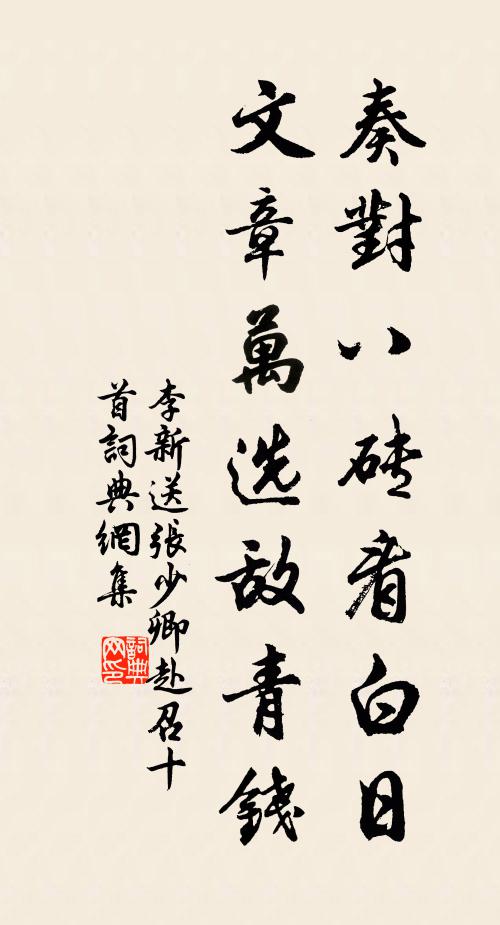 奏對八磚看白日
文章萬选敌青錢
李新送張少卿赴召十
首詞典網集
詞典
网印